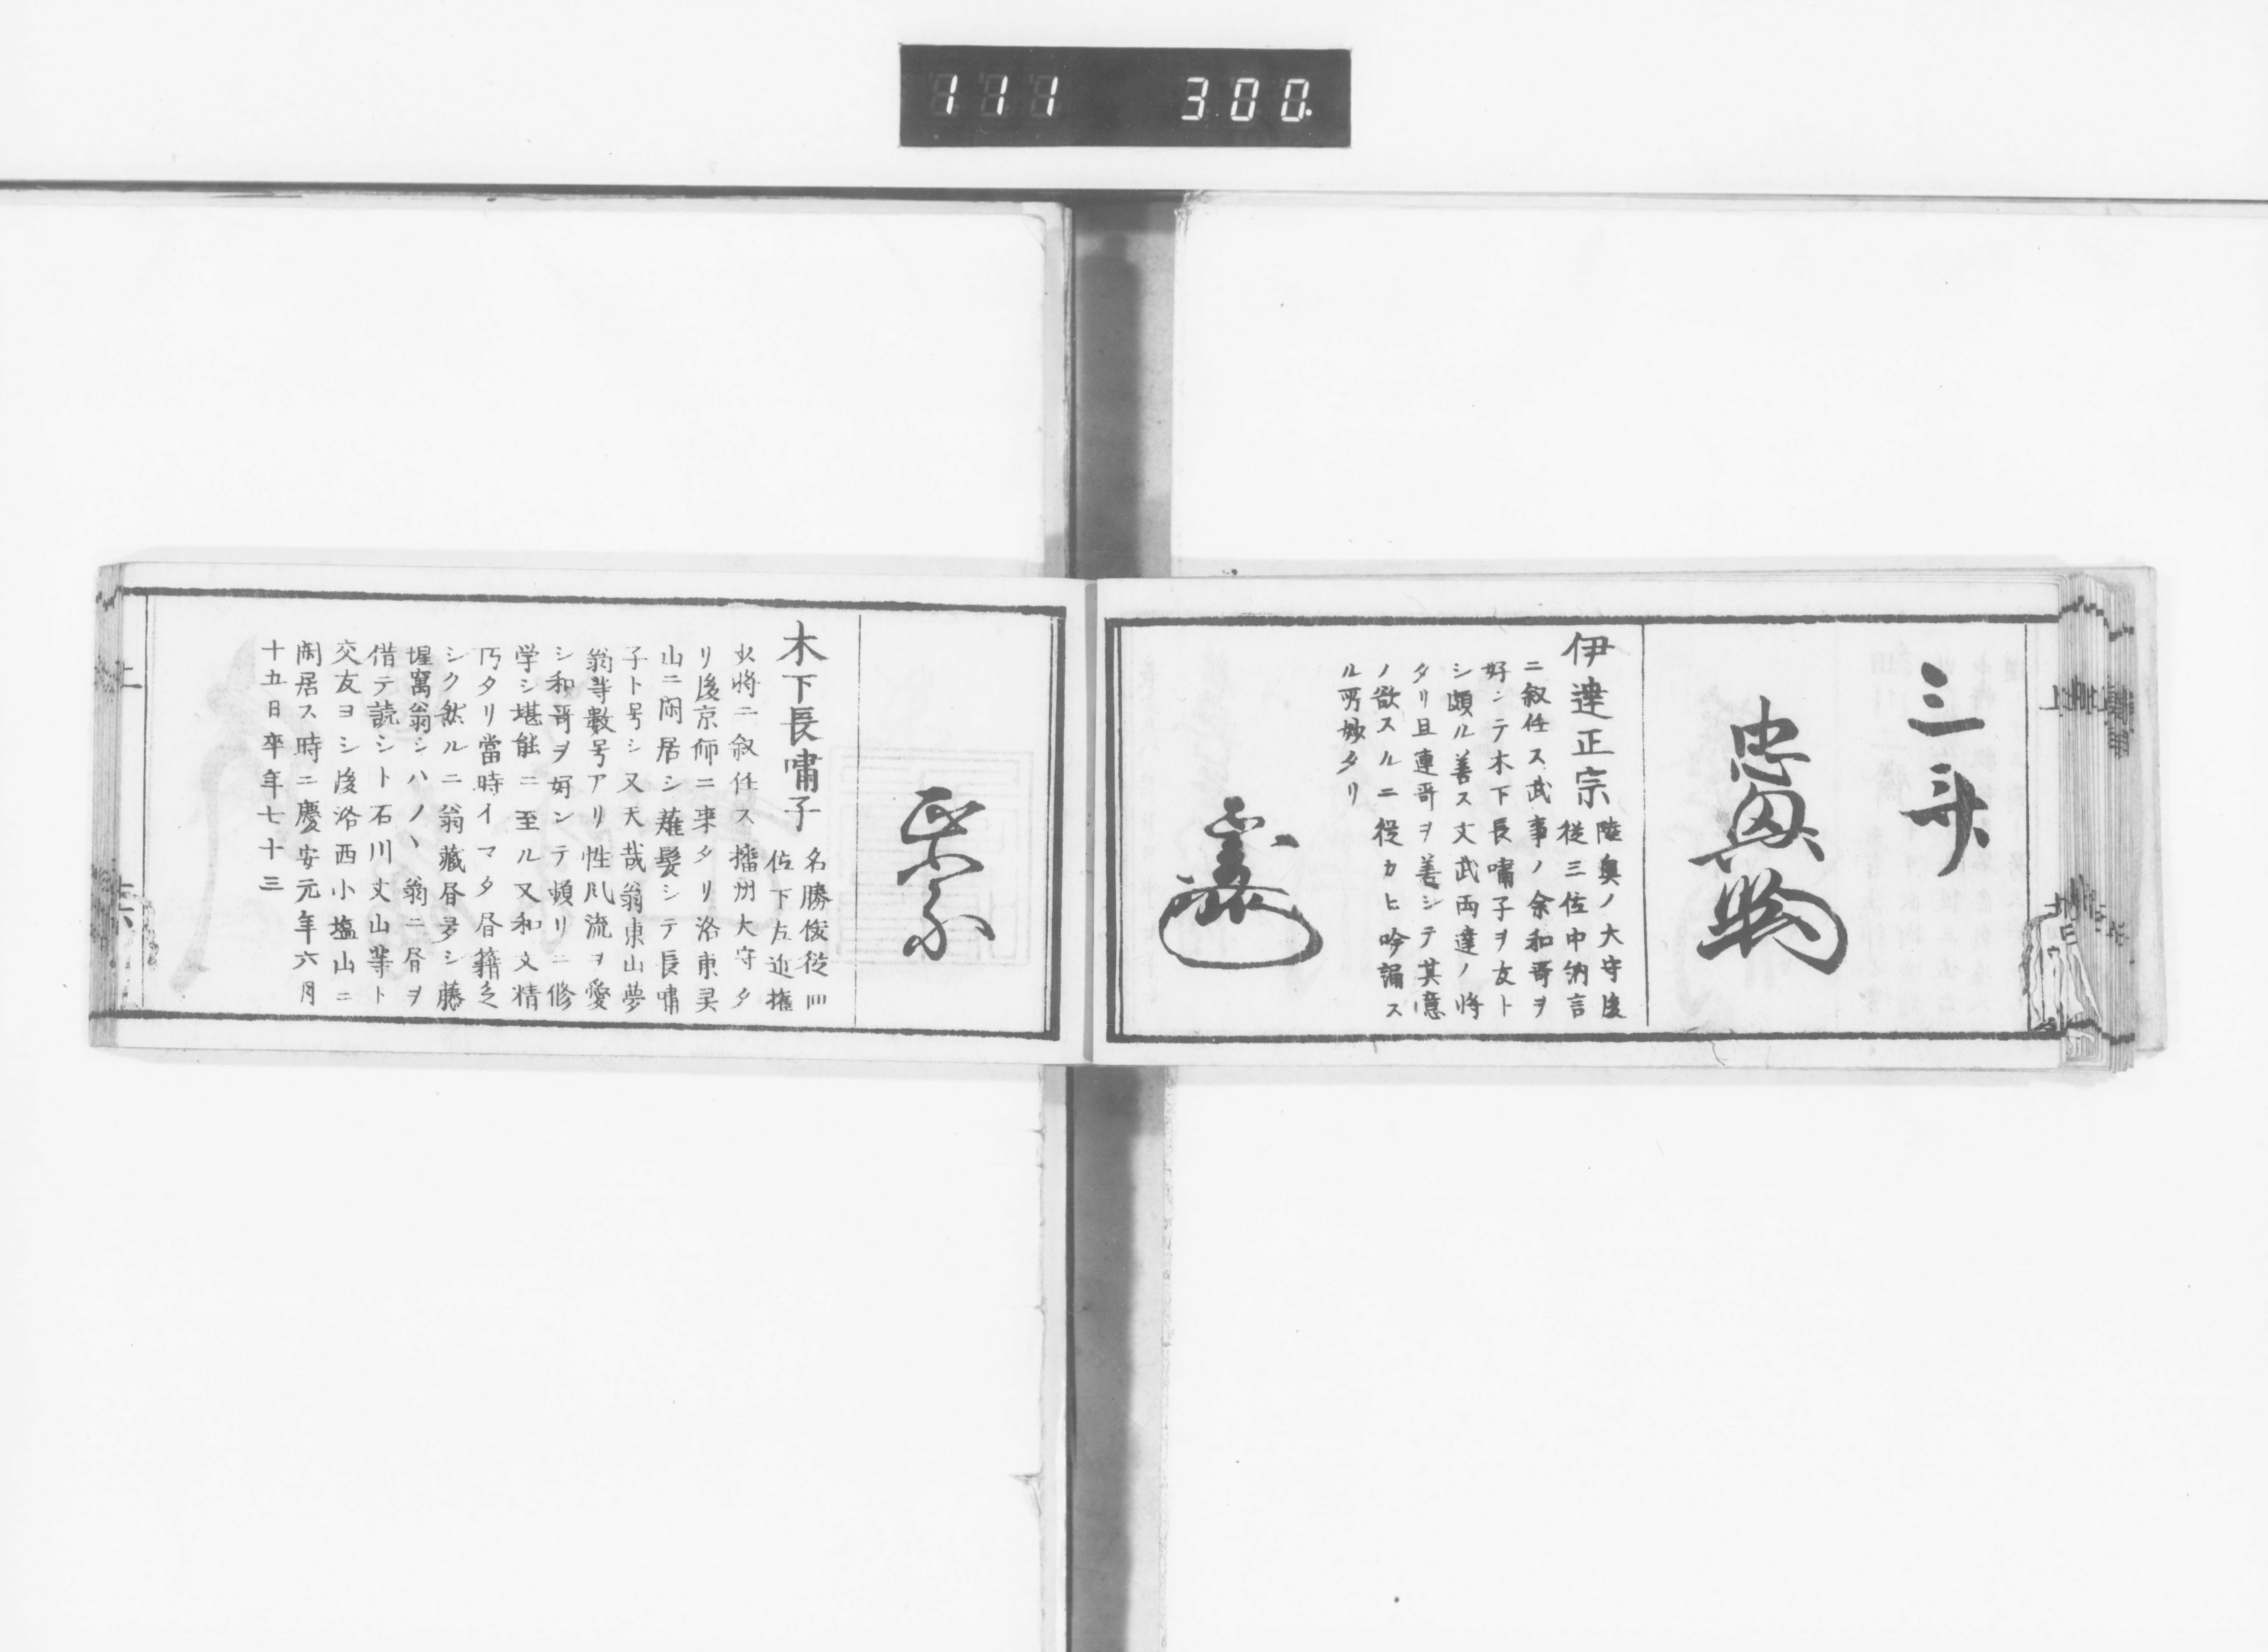 111 300
三斎
忠興
伊達正宗
陸奥ノ大守後
従三位中納言
ニ叙任ス武事ノ余和哥ヲ
好シテ木下長嘯子ヲ友ト
シ頗ル善ス文武両達ノ将
タリ且連哥ヲ善シテ其意
ノ欲スルニ従カヒ吟謡ス
ル所妙タリ
政宗
木下長嘯子
名勝俊従四
位下左近権
少将ニ叙任ス播州大守タ
リ後京師ニ来タリ洛東灵
山ニ閑居シ薙髪シテ長嘯
子ト号シ又天哉翁東山夢
翁等数号アリ性風流ヲ愛
シ和哥ヲ好ンテ頻リニ修
学シ堪能ニ至ル又和文精
巧タリ當時イマタ昏籍乏
シク然ルニ翁藏昏多シ藤
惺窩翁シハノヽ翁ニ昏ヲ
借テ読シト石川丈山等ト
交友ヨシ後洛西小塩山ニ
閑居ス時ニ慶安元年六月
十五日卒年七十三
上